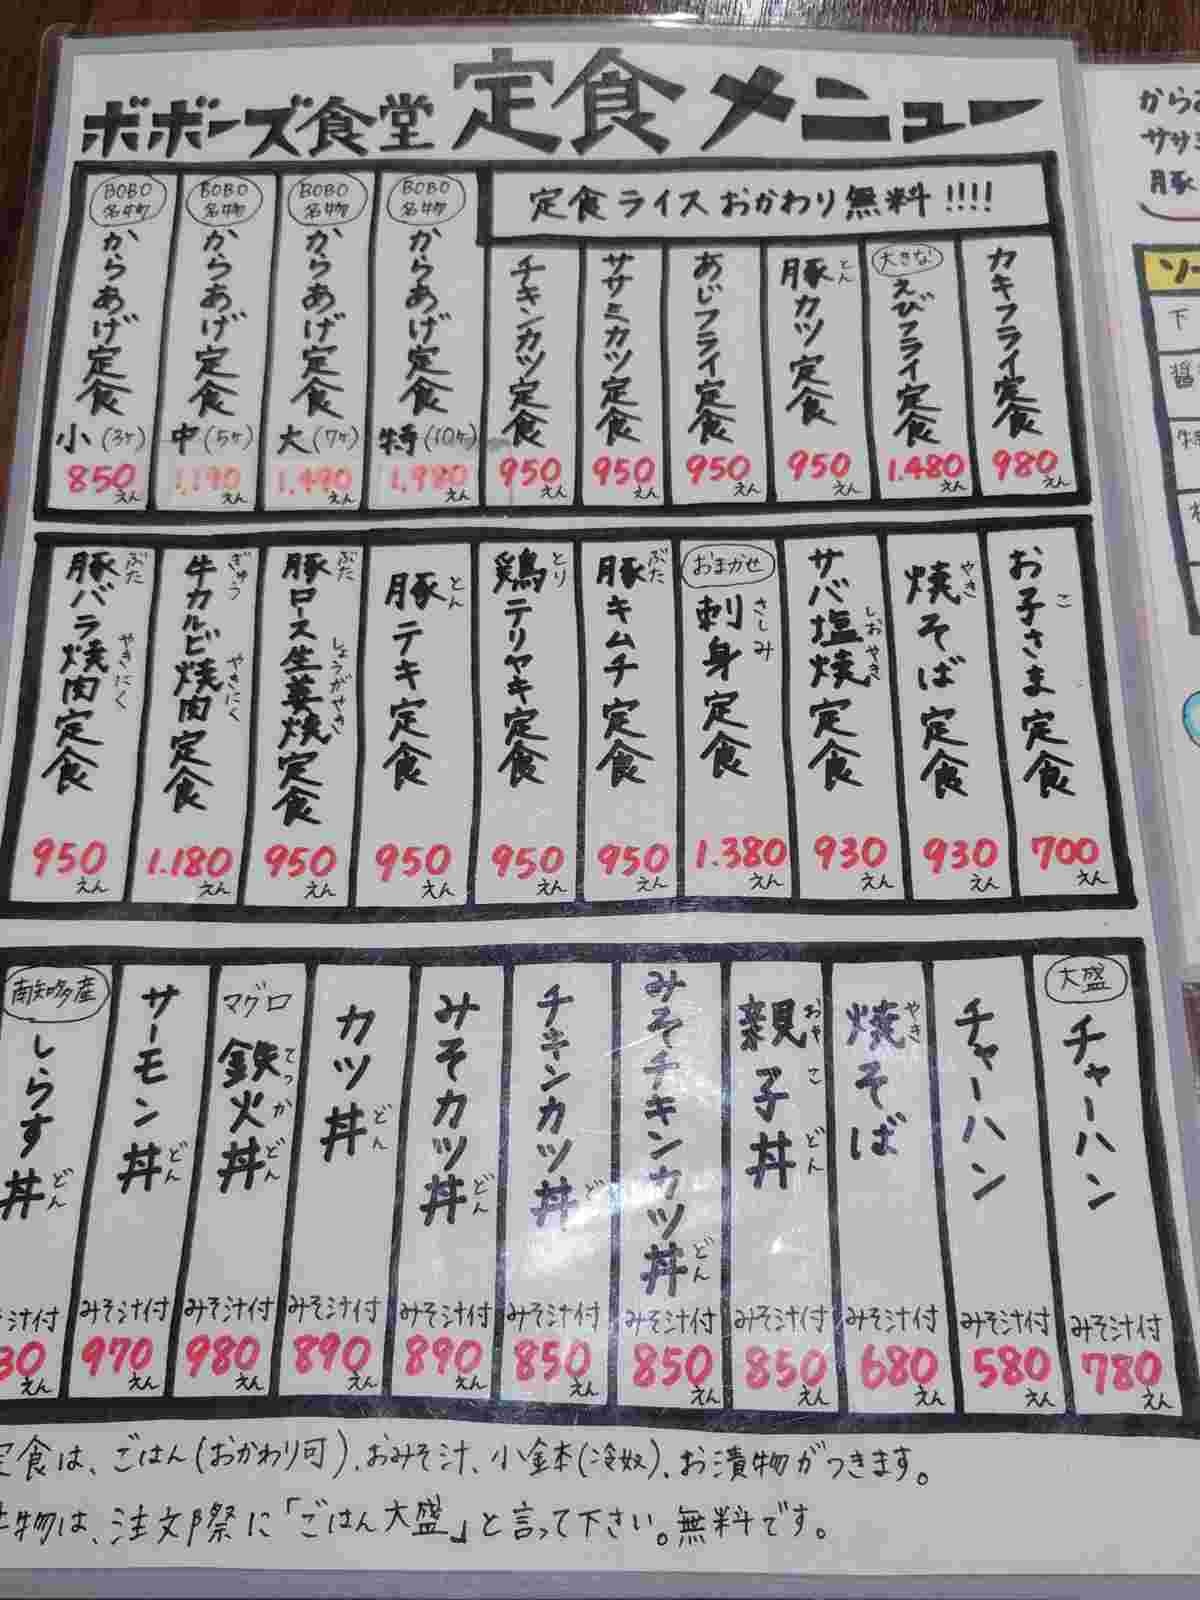 ボボーズ食堂 定食メニュー
定食ライスおかわり無料!!!!
BOBO名物 からあげ定食 小(3ヶ) 850えん
BOBO名物 からあげ定食 中(5ヶ) 1.190えん
BOBO名物 からあげ定食 大(7ヶ) 1.490えん
BOBO名物 からあげ定食 特(10ヶ) 1.980えん
チキンカツ定食 950えん
ササミカツ定食 950えん
あじフライ定食 950えん
豚とんカツ定食 950えん
大きな えびフライ定食 1.480えん
カキフライ定食 980えん
豚ぶたバラ焼肉やきにく定食 950えん
牛ぎゅうカルビ焼肉やきにく定食 1.180えん
豚ぶたロース生姜焼しょうがやき定食 950えん
豚とんテキ定食 950えん
鶏とりテリヤキ定食 950えん
豚ぶたキムチ定食 950えん
おまかせ 刺身さしみ定食 1.380えん
サバ塩焼しおやき定食 930えん
焼やきそば定食 930えん
お子こさま定食 700えん
南知多産 しらす丼どん そ汁付 30えん
サーモン丼どん みそ汁付 970えん
マグロ 鉄火丼てっかどん みそ汁付 980えん
カツ丼どん みそ汁付 890えん
みそカツ丼どん みそ汁付 890えん
チキンカツ丼ど みそ汁付 850えん
みそチキンカツ丼どん みそ汁付 850えん
親子丼おやこどん みそ汁付 850えん
焼やきそば みそ汁付 680えん
チャーハン みそ汁付 580えん
大盛 チャーハン みそ汁付 780えん
定食は、ごはん(おかわり可)、おみそ汁、小鉢(冷奴)、お漬物がつきます。
物は、注文の際に「ごはん大盛」と言って下さい。無料です。
から
ササミ
豚
ソー
下
醤
特